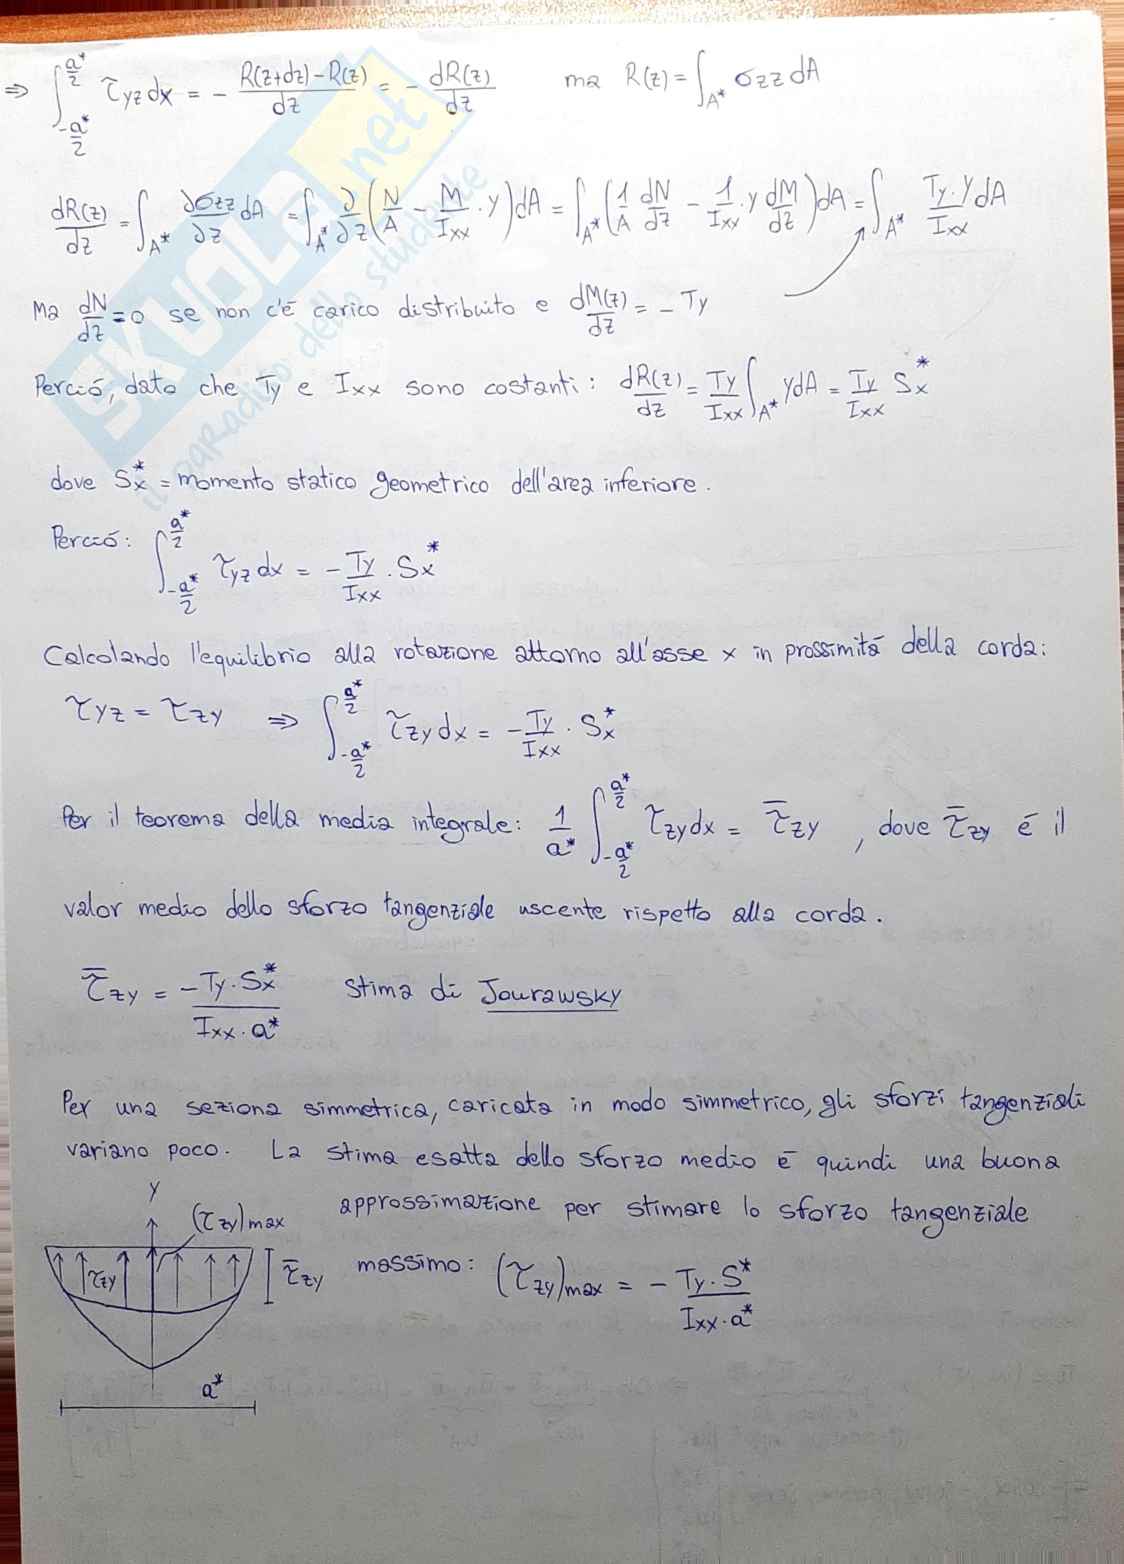 ⇒ ∫_{-a*/2}^{a*/2} τyz dx = - (R(z+dz)-R(z))/dz = - dR(z)/dz   ma R(z) = ∫_{A*} σzz dA
dR(z)/dz = ∫_{A*} ∂σzz/∂z dA = ∫_{A*} ∂/∂z (N/A - M/Ixx · y) dA = ∫_{A*} (1/A dN/dz - 1/Ixx · y dM/dz) dA = ∫_{A*} Ty·y/Ixx dA
Ma dN/dz = 0 se non c'é carico distribuito e dM(z)/dz = - Ty
Perció, dato che Ty e Ixx sono costanti: dR(z)/dz = Ty/Ixx ∫_{A*} y dA = Ty/Ixx Sx*
dove Sx* = momento statico geometrico dell'area inferiore.
Perció: ∫_{-a*/2}^{a*/2} τyz dx = - Ty/Ixx · Sx*
Calcolando l'equilibrio alla rotazione attorno all'asse x in prossimitá della corda:
τyz = τzy ⇒ ∫_{-a*/2}^{a*/2} τzy dx = - Ty/Ixx · Sx*
Per il teorema della media integrale: 1/a* ∫_{-a*/2}^{a*/2} τzy dx = τ̄zy , dove τ̄zy é il
valor medio dello sforzo tangenziale uscente rispetto alla corda.
τ̄zy = -Ty·Sx* / Ixx·a*   stima di Jourawsky
Per una seziona simmetrica, caricata in modo simmetrico, gli sforzi tangenziali
variano poco. La stima esatta dello sforzo medio é quindi una buona
approssimazione per stimare lo sforzo tangenziale
massimo: (τzy)max = - Ty·S* / Ixx·a*
y
(τzy)max
τzy
τ̄zy
a*
SKUOLA.net
il paradiso dello studente